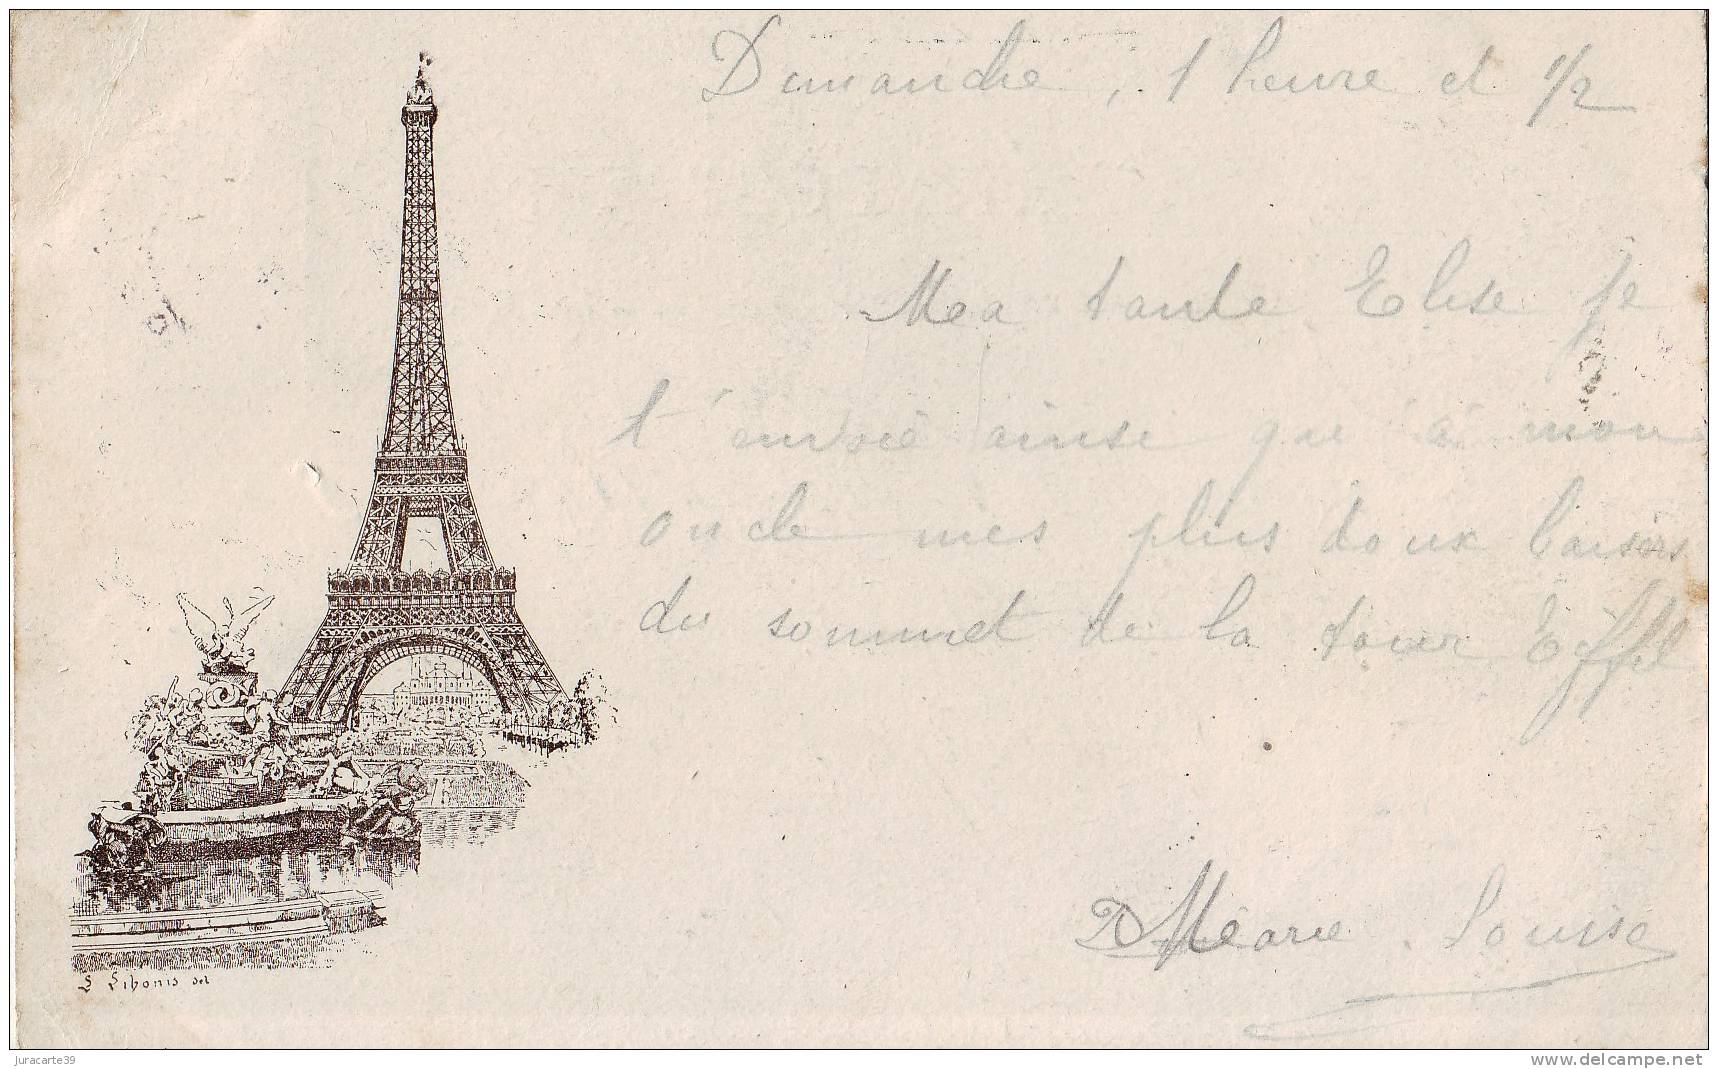 Dimanche, 1 heure et 1/2
Ma tante Elise je
t'envoie ainsi qu'à mon
oncle mes plus doux baisers
du sommet de la tour Eiffel
Marie Louise
L Libonis del
Juracarte39
www.delcampe.net